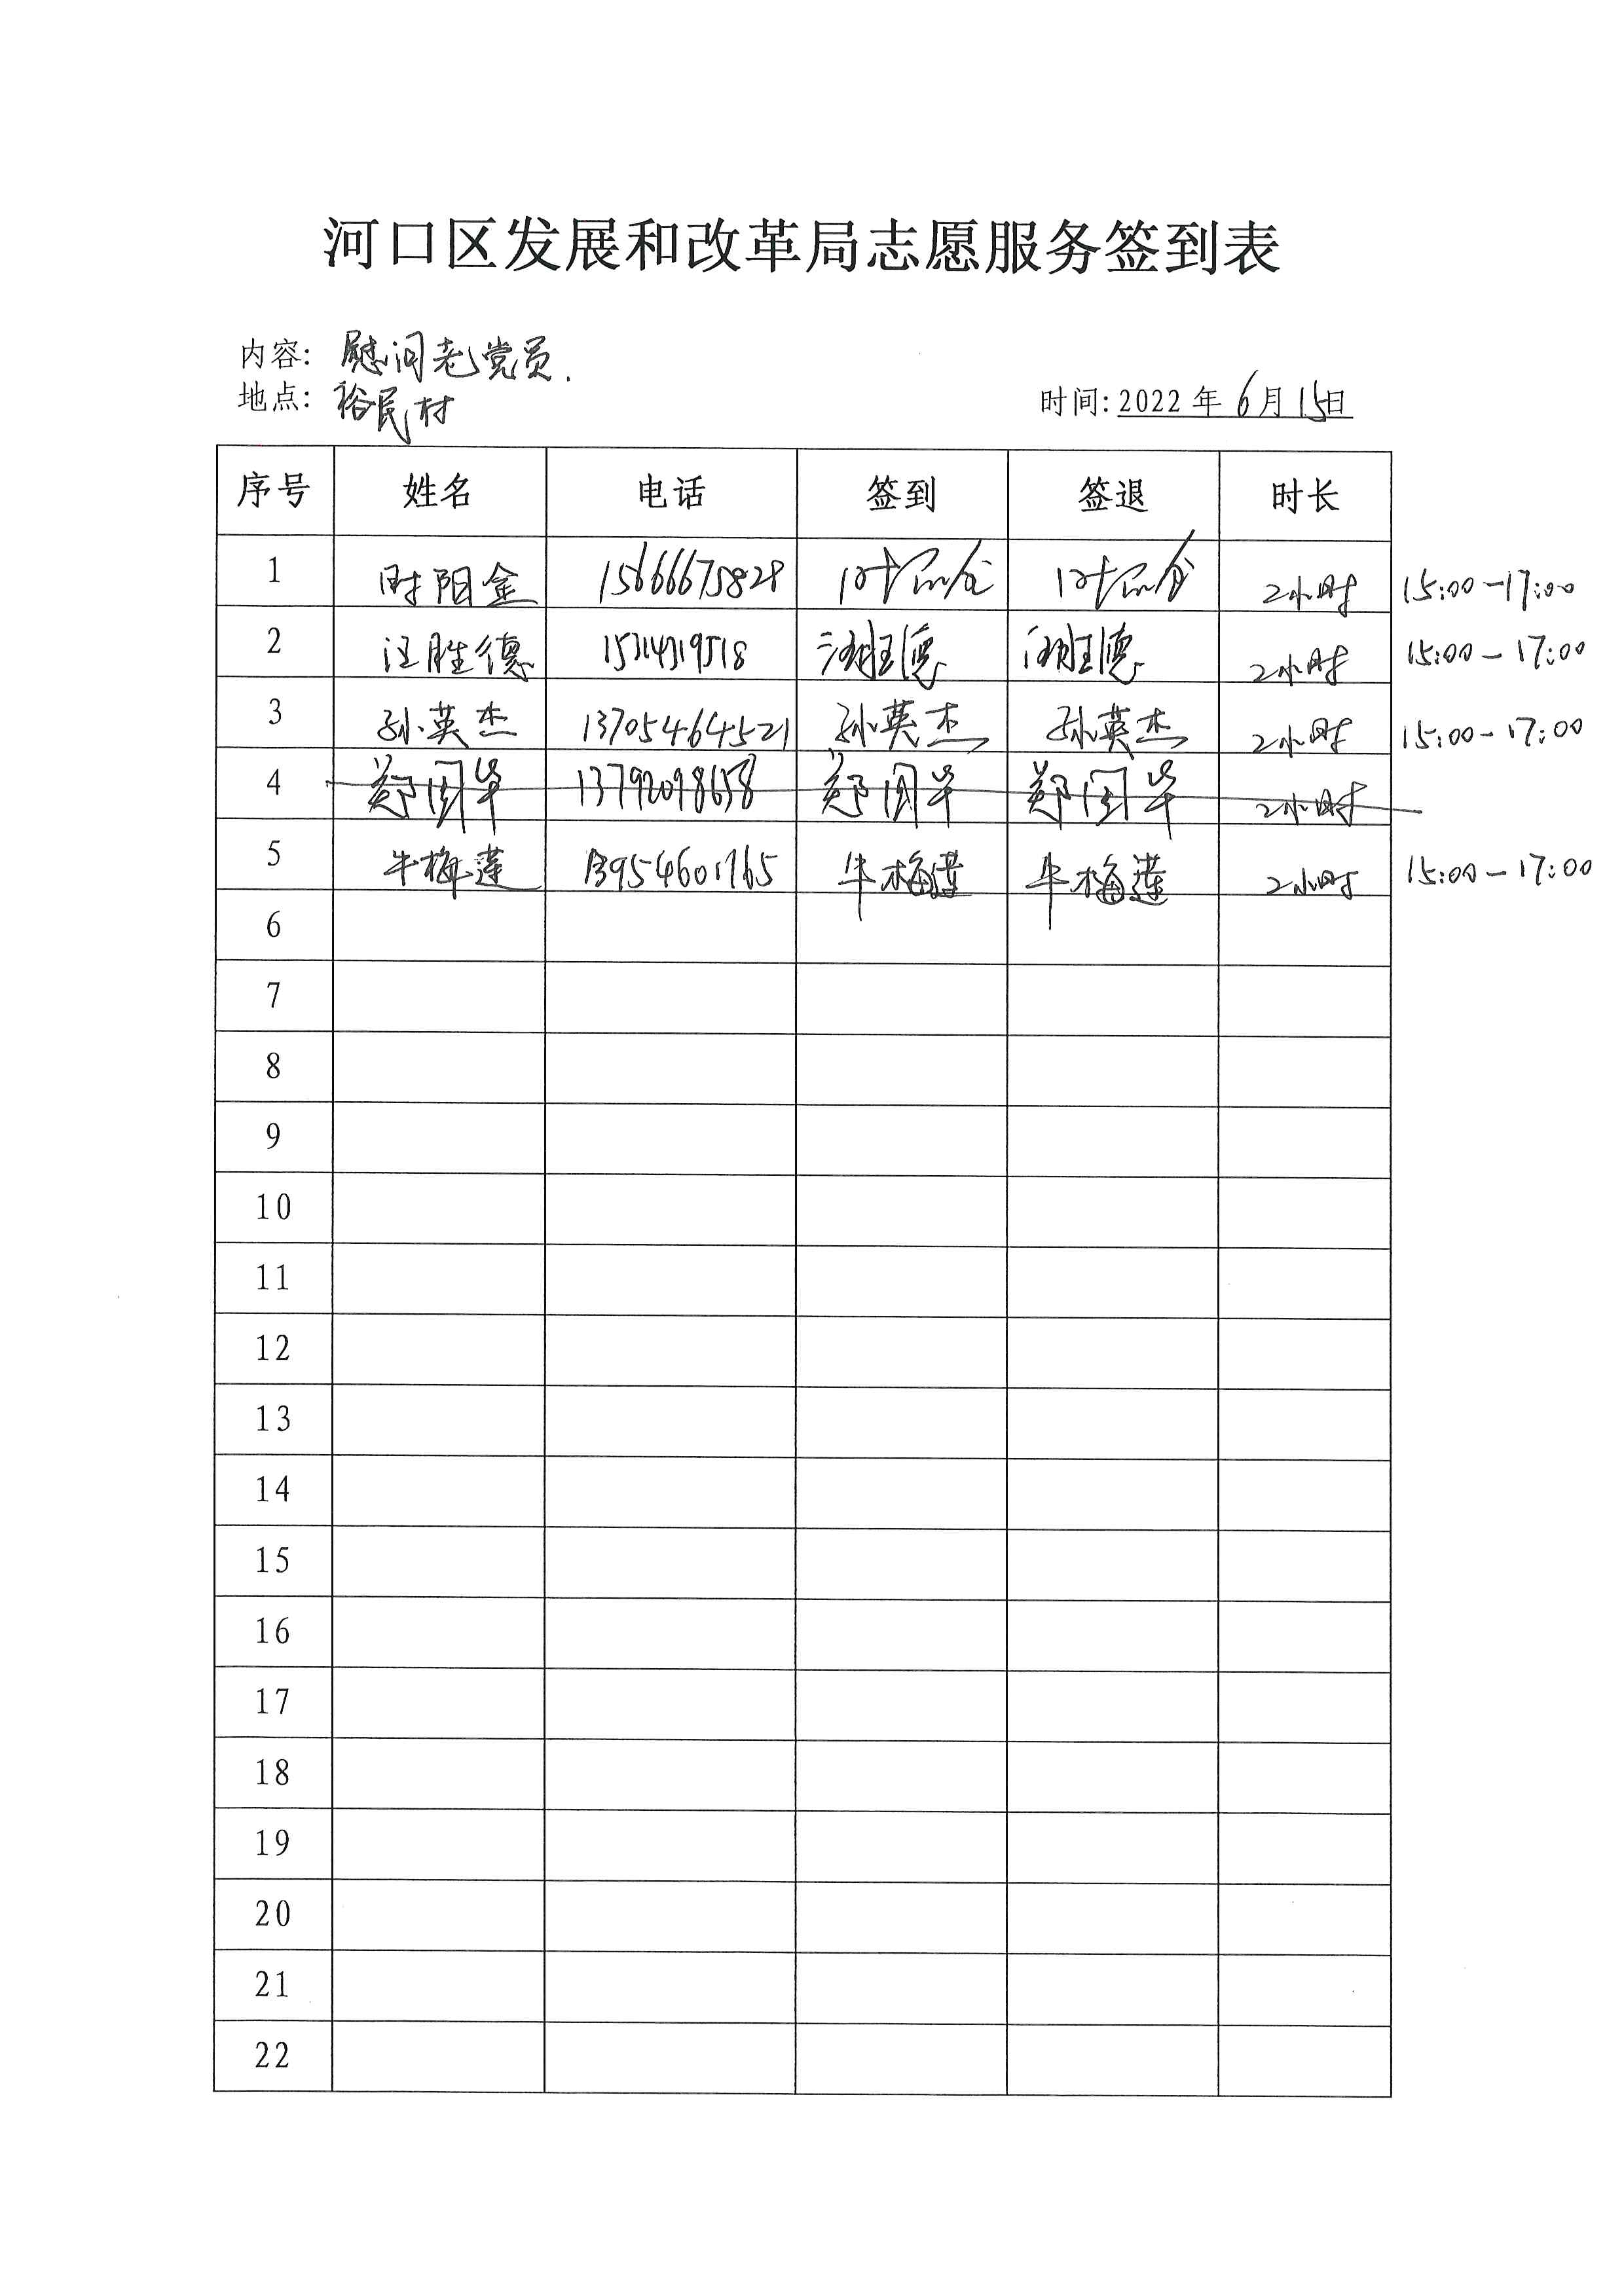 河口区发展和改革局志愿服务签到表
内容: 慰问老党员.
地点: 裕民村
时间: 2022 年 6 月 15 日
序号 姓名 电话 签到 签退 时长
1 时阳金 15666675828 2小时 15:00-17:00
2 汪胜德 15314319518 汪胜德 汪胜德 2小时 15:00-17:00
3 孙英杰 13705464521 孙英杰 孙英杰 2小时 15:00-17:00
4 郑国华 13792098658 郑国华 郑国华 2小时
5 牛梅莲 13954601765 牛梅莲 牛梅莲 2小时 15:00-17:00
6
7
8
9
10
11
12
13
14
15
16
17
18
19
20
21
22